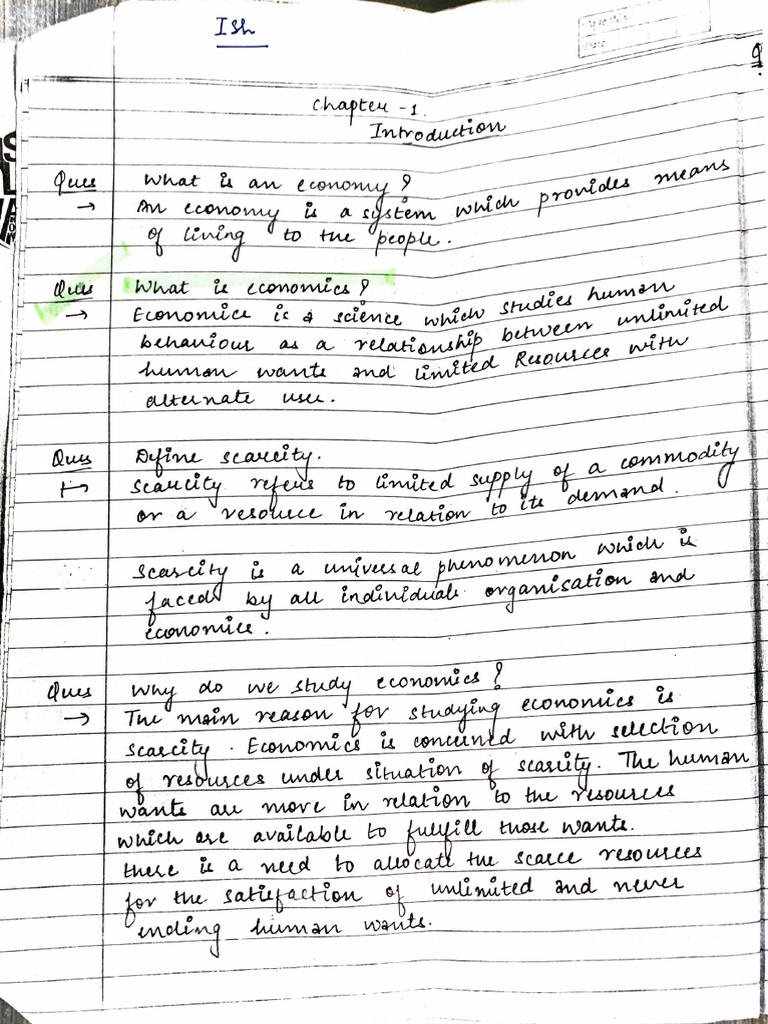 Ish
Chapter - 1.
Introduction
Ques What is an economy?
→ An economy is a system which provides means
of living to the people.
Ques What is economics?
→ Economics is a science which studies human
behaviour as a relationship between unlimited
human wants and limited Resources with
alternate use.
Ques Define scarcity.
→ Scarcity refers to limited supply of a commodity
or a resource in relation to its demand.
Scarcity is a universal phenomenon which is
faced by all individuals organisation and
economies.
Ques Why do we study economics?
→ The main reason for studying economics is
scarcity. Economics is concerned with selection
of resources under situation of scarsity. The human
wants are more in relation to the resources
which are available to fulfill those wants.
there is a need to allocate the scarce resources
for the satisfaction of unlimited and never
ending human wants.